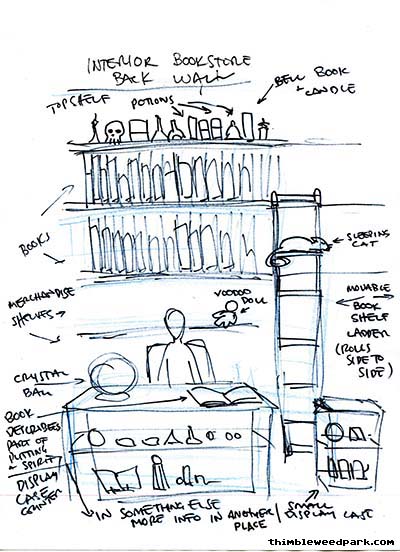 INTERIOR BOOKSTORE
BACK WALL
TOPSHELF
POTIONS
BELL BOOK
+ CANDLE
BOOKS
SLEEPING
CAT
MERCHANDISE
SHELVES
VOODOO
DOLL
MOVABLE
BOOK
SHELF
LADDER
(ROLLS
SIDE TO
SIDE)
CRYSTAL
BALL
BOOK
DESCRIBES
PART OF
PUTTING
A SPIRIT
DISPLAY
CASE
COUNTER
IN SOMETHING ELSE
MORE INFO IN ANOTHER
PLACE
SMALL
DISPLAY CASE
thimbleweedpark.com